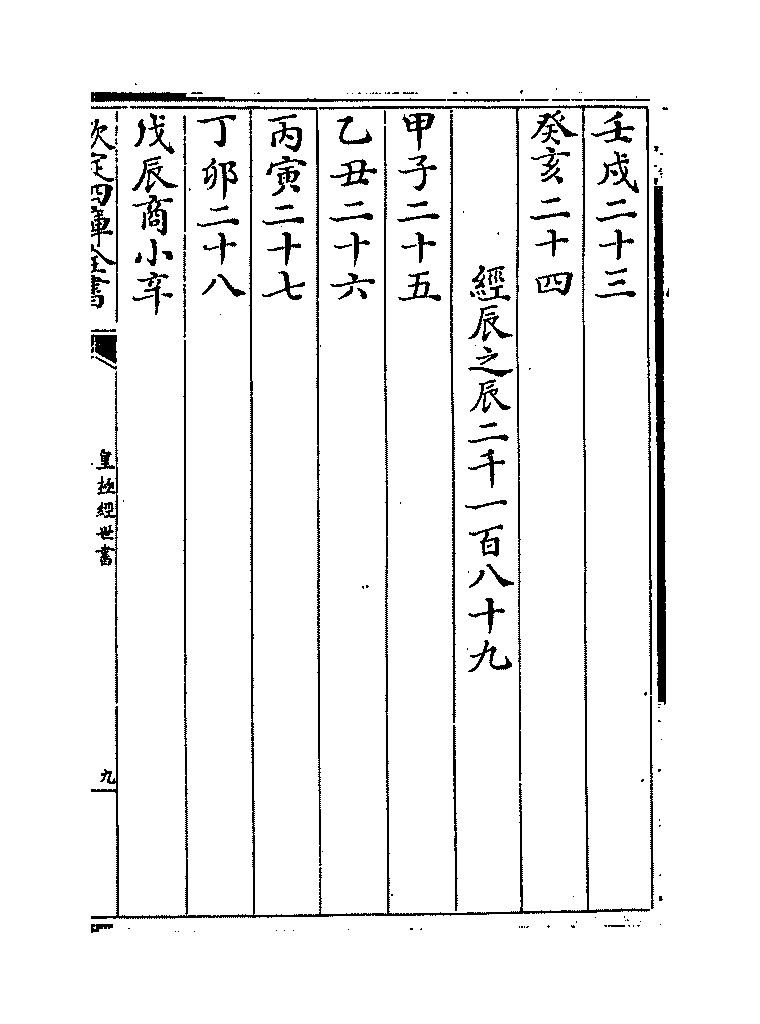 壬戌二十三
癸亥二十四
經辰之辰二千一百八十九
甲子二十五
乙丑二十六
丙寅二十七
丁卯二十八
戊辰商小辛
欽定四庫全書
皇極經世書
九